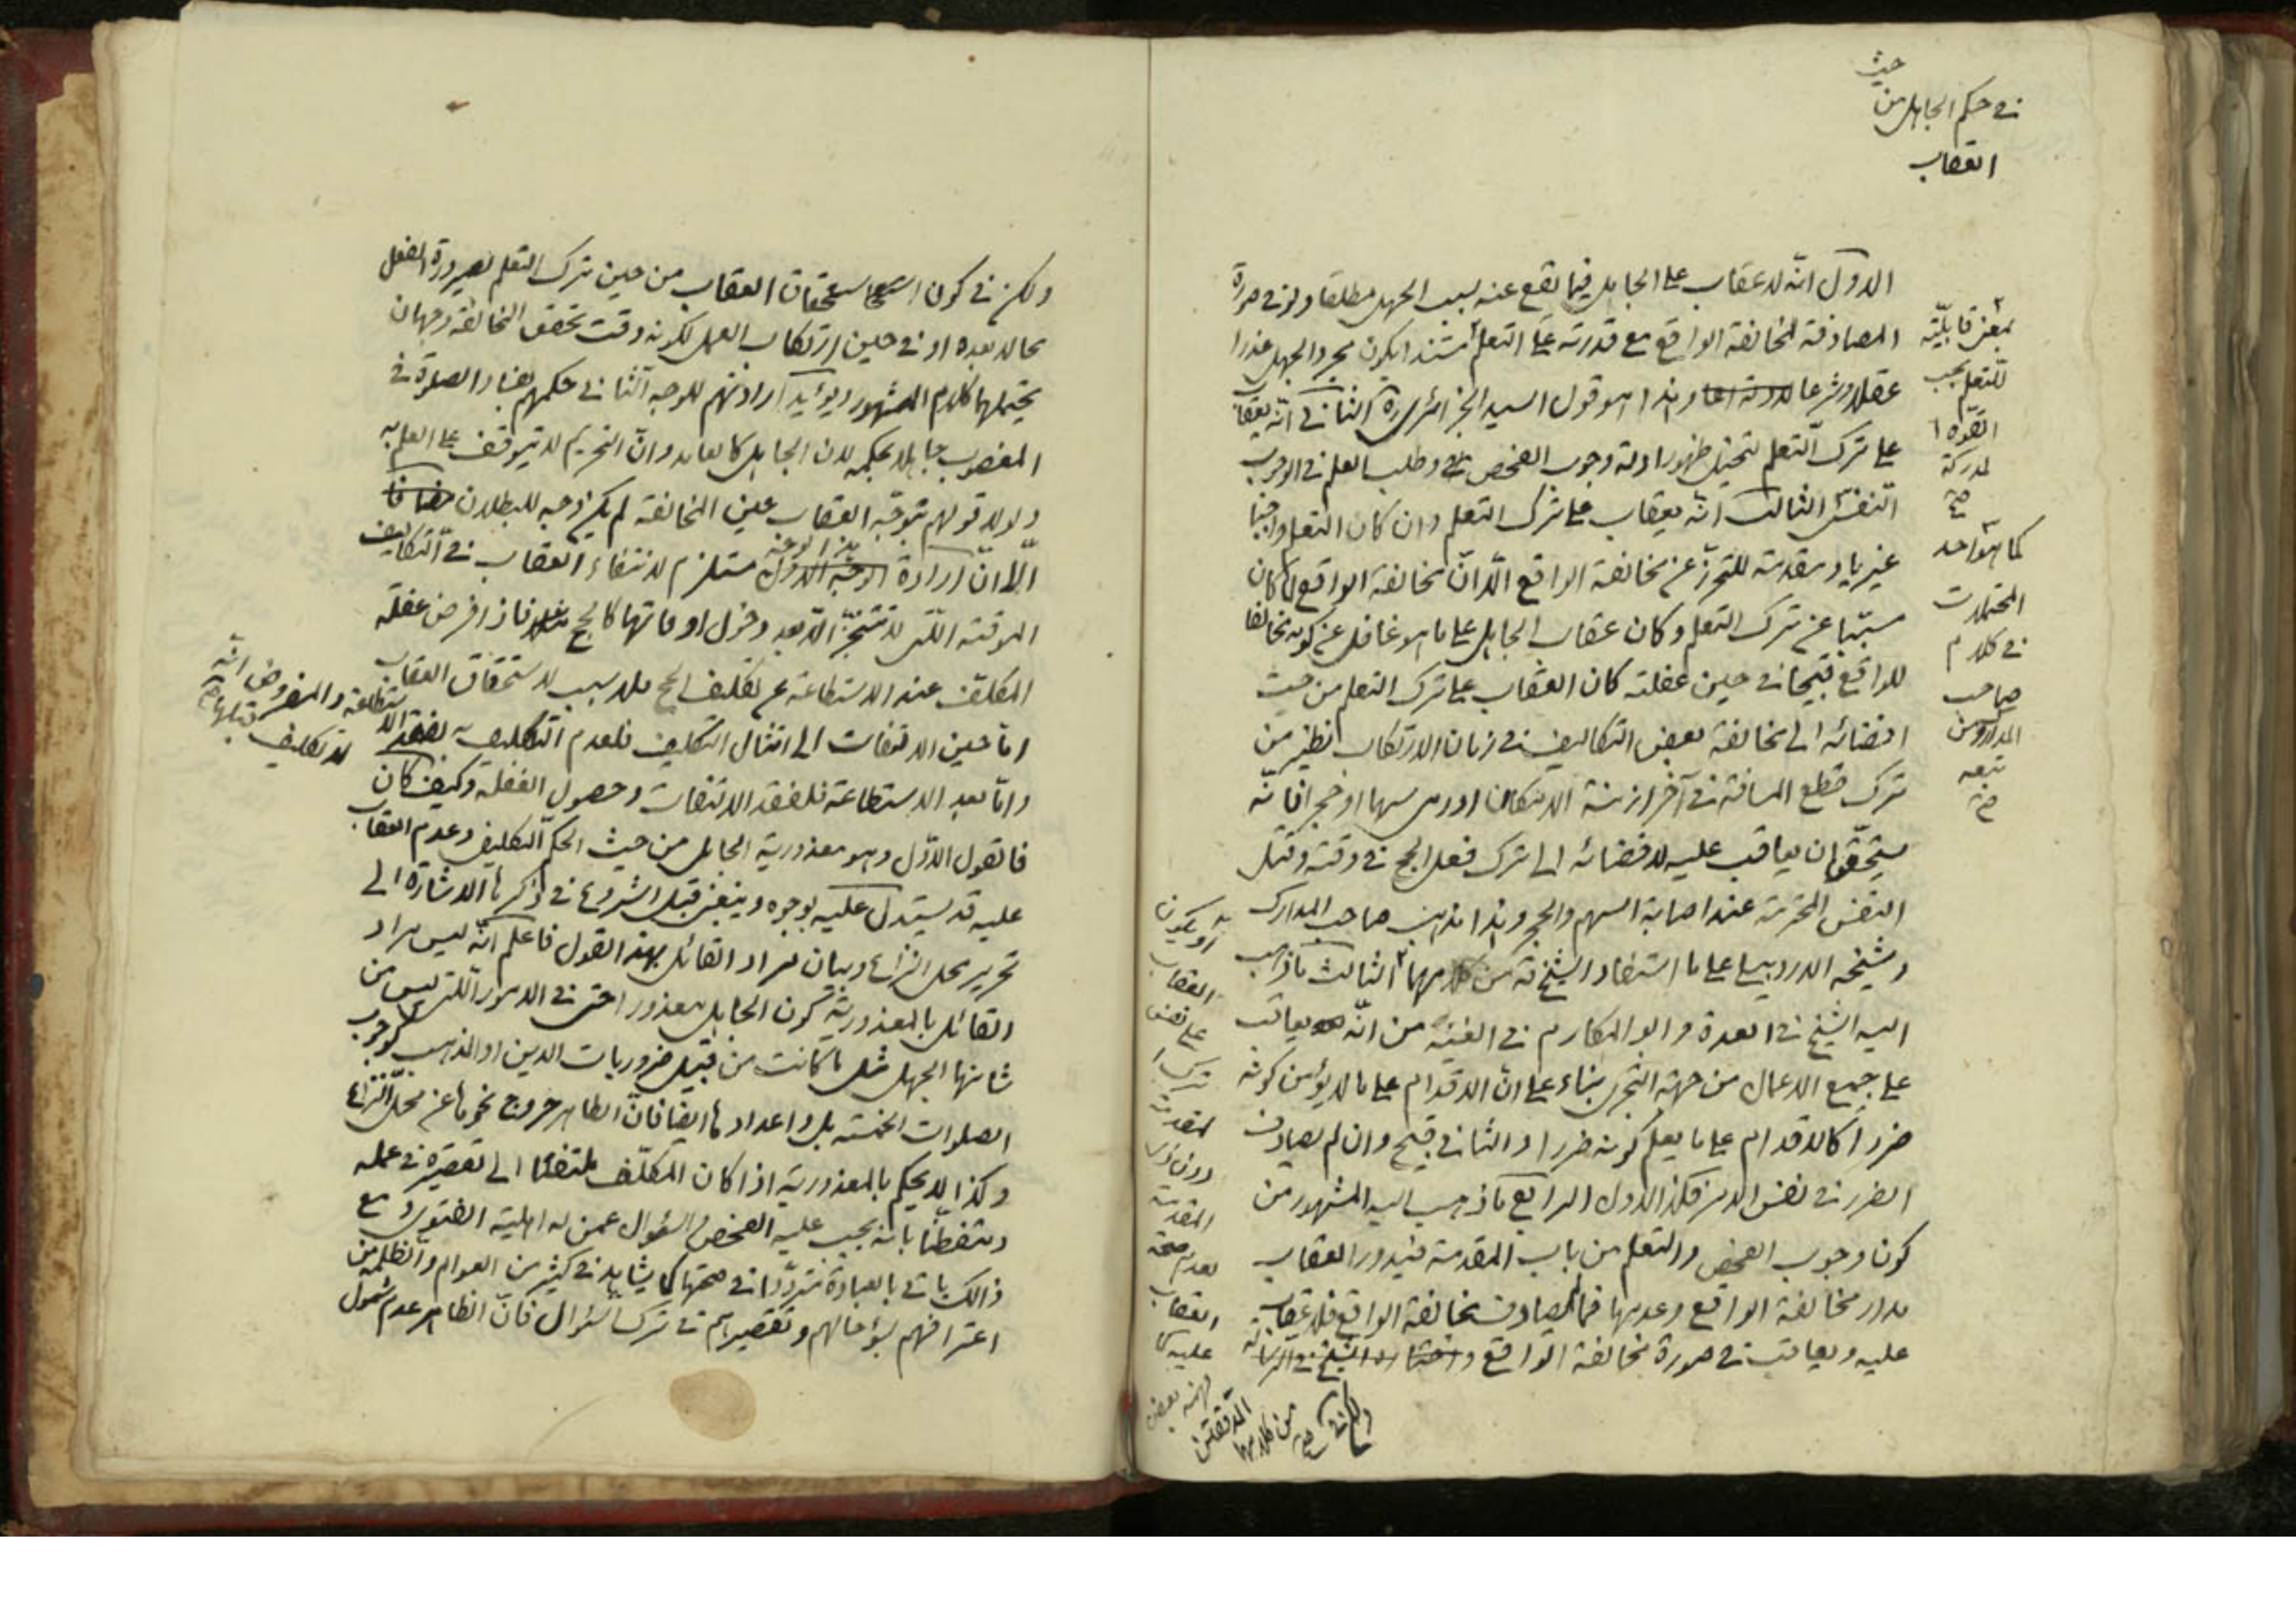 في حكم الجاهل من
حيث
العقاب
الاول انه لا عقاب على الجاهل فيما يقع عنه بسبب الجهل مطلقا ولو في صورة
المصادفة لمخالفة الواقع مع قدرته على التعلم مستندا بكون مجرد الجهل عذرا
عقلا وشرعا وهذا هو قول السيد الجزائري ره الثاني انه يعاقب
على ترك التعلم لتخيل ظهور ادلة وجوب الفحص وطلب العلم في الوجوب
النفسي الثالث انه يعاقب على ترك التعلم وان كان التعلم واجبا
غيريا ومقدمة للتحرز عن مخالفة الواقع الا ان مخالفة الواقع لما كان
مسببا عن ترك التعلم وكان عقاب الجاهل على ما هو غافل عن كونه مخالفا
للواقع قبيحا في حين غفلته كان العقاب على ترك التعلم من حيث
افضائه الى مخالفة بعض التكاليف في زمان الارتكاب نظير من
ترك قطع المسافة في آخر ازمنة الامكان او رمى سهما او حجرا فانه
يستحق ان يعاقب عليه لافضائه الى ترك فعل الحج في وقته وقتل
النفس المحترمة عند اصابة السهم والحجر وهذا مذهب صاحب المدارك
وشيخه الاردبيلي على ما استفاد الشيخ ره من كلامهما الثالث ما ذهب
اليه الشيخ في العدة وابو المكارم في الغنية من انه يعاقب
على جميع الاعمال من جهة التجري بناء على ان الاقدام على ما لا يؤمن كونه
ضررا كالاقدام على ما يعلم كونه ضررا والثاني قبيح وان لم يصادف
الضرر في نفس الامر فكذا الاول الرابع ما ذهب اليه المشهور من
كون وجوب الفحص والتعلم من باب المقدمة فيدور العقاب
مدار مخالفة الواقع وعدمها فما لم يصادف مخالفة الواقع فلا عقاب
عليه ويعاقب في صورة مخالفة الواقع واختاره الشيخ في الرسالة
ولكن في
بمعنى قابلية
للتعلم بحسب
القوة
المدركة
صح
كما هو احد
المحتملات
في كلام
صاحب
المدارك ومن
تبعه
صح
او يكون
العقاب
على نفس
ترك
المقدمة
دون ذي
المقدمة
لعدم صحة
العقاب
عليه كما
فهمه بعض
المدققين
من كلامهما
صح
ولكن في كون استحقاق العقاب من حين ترك التعلم لصيرورة الفعل
محالا بعده او في حين ارتكاب العمل لكونه وقت تحقق المخالفة وجهان
يحتملهما كلام المشهور ويؤيد ارادتهم للوجه الثاني حكمهم بفساد الصلوة في
المغصوب جاهلا بحكمه لان الجاهل كالعامد وان التحريم لا يتوقف على العلم به
ولولا قولهم بتوجه العقاب حين المخالفة لم يكن وجه للبطلان
الا ان ارادة هذا الوجه مستلزم لانتفاء العقاب في التكاليف
الموقتة التي لا تتنجز الا بعد دخول اوقاتها كالحج فاذا فرض غفلة
المكلف عند الاستطاعة عن تكليف الحج فلا سبب لاستحقاق العقاب
اما حين الالتفات الى امتثال التكليف فلعدم التكليف به لفقد الاستطاعة والمفروض انه
لا تكليف قبلها صح
واما بعد الاستطاعة فلفقد الالتفات وحصول الغفلة وكيف كان
فالقول الاول وهو معذورية الجاهل من حيث الحكم التكليفي وعدم العقاب
عليه قد يستدل عليه بوجوه وينبغي قبل الشروع في ذكرها الاشارة الى
تحرير محل النزاع وبيان مراد القائل بهذا القول فاعلم انه ليس مراد
القائل بالمعذورية كون الجاهل معذورا حتى في الامور التي ليس من
شانها الجهل مثل ما كانت من قبيل ضروريات الدين او المذهب كوجوب
الصلوات الخمسة بل واعدادها ايضا فان الظاهر خروج نحوها عن محل النزاع
وكذا لا يحكم بالمعذورية اذا كان المكلف ملتفتا الى تقصيره في عمله
ومتفطنا بانه يجب عليه الفحص والسؤال عمن له اهلية الفتوى ومع
ذالك ياتي بالعبادة مترددا في صحتها كما يشاهد في كثير من العوام والظلمة من
اعترافهم بسوء حالهم وتقصيرهم في ترك السؤال فان الظاهر عدم شمول